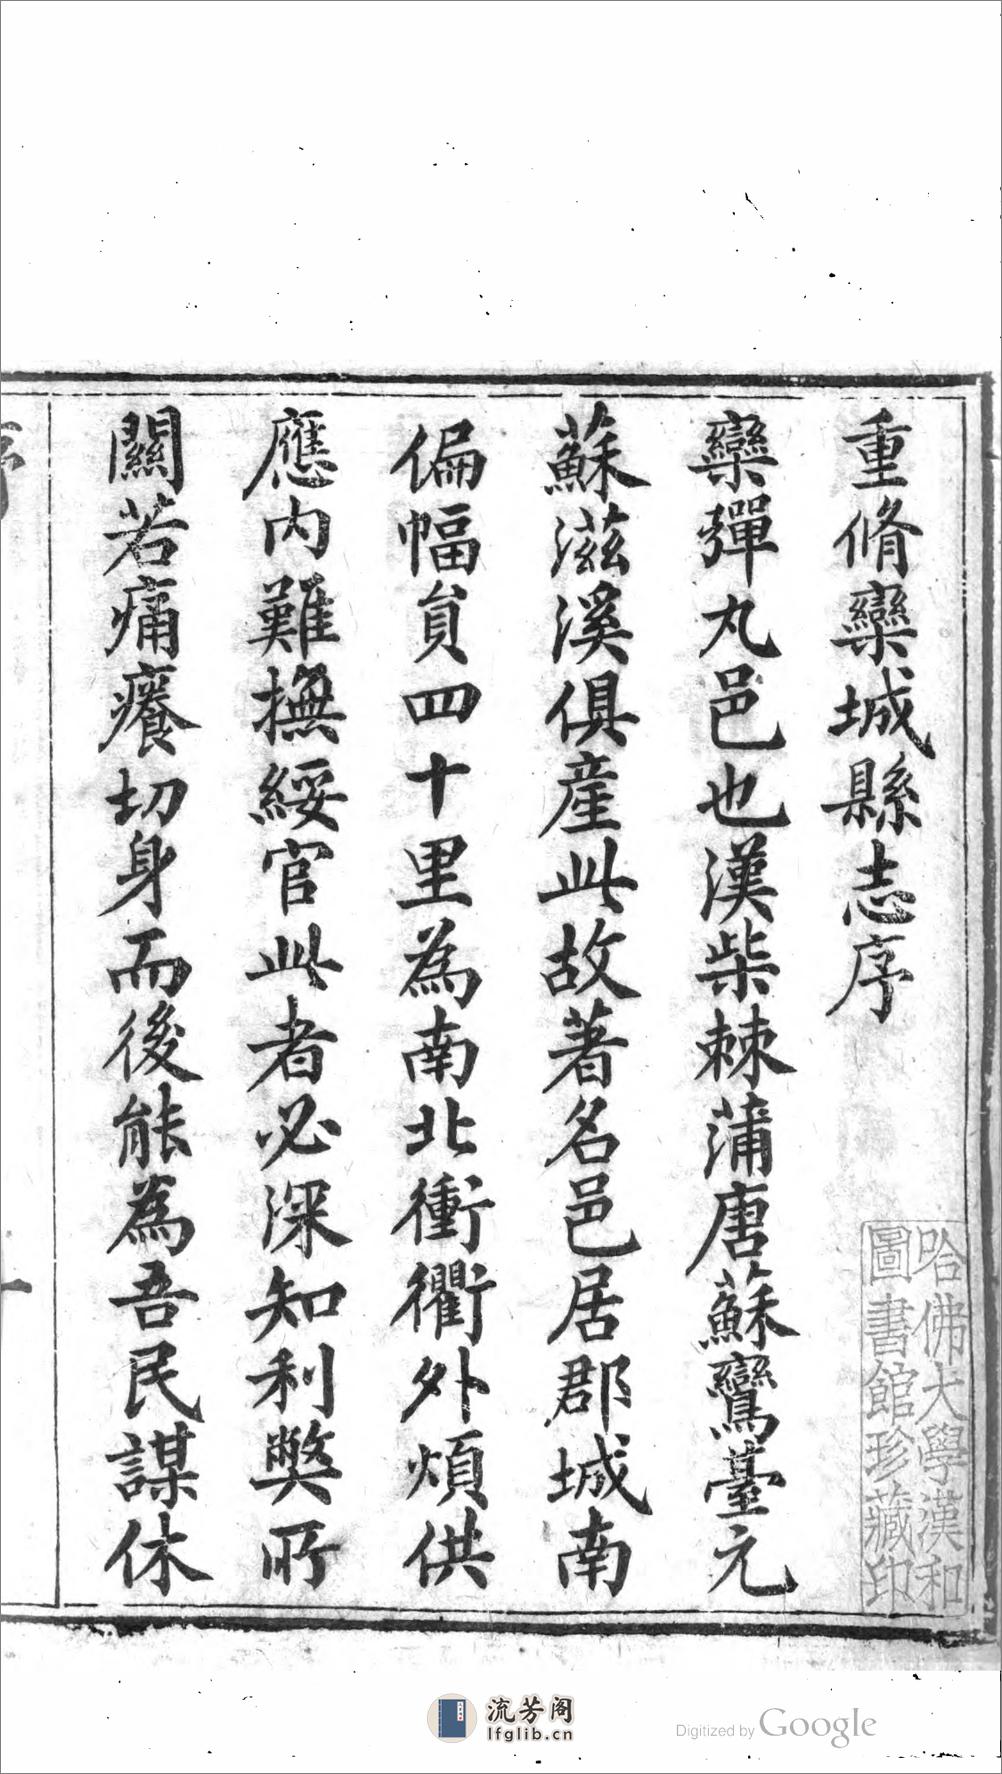 重脩欒城縣志序
欒彈丸邑也漢柴棘蒲唐蘇鸞臺元
蘇滋溪俱産此故著名邑居郡城南
偏幅貟四十里為南北衝衢外煩供
應内難撫綏官此者必深知利獘所
關若痛癢切身而後能為吾民謀休
哈佛大學漢和
圖書館珍藏印
流芳阁
lfglib.cn
Digitized by Google